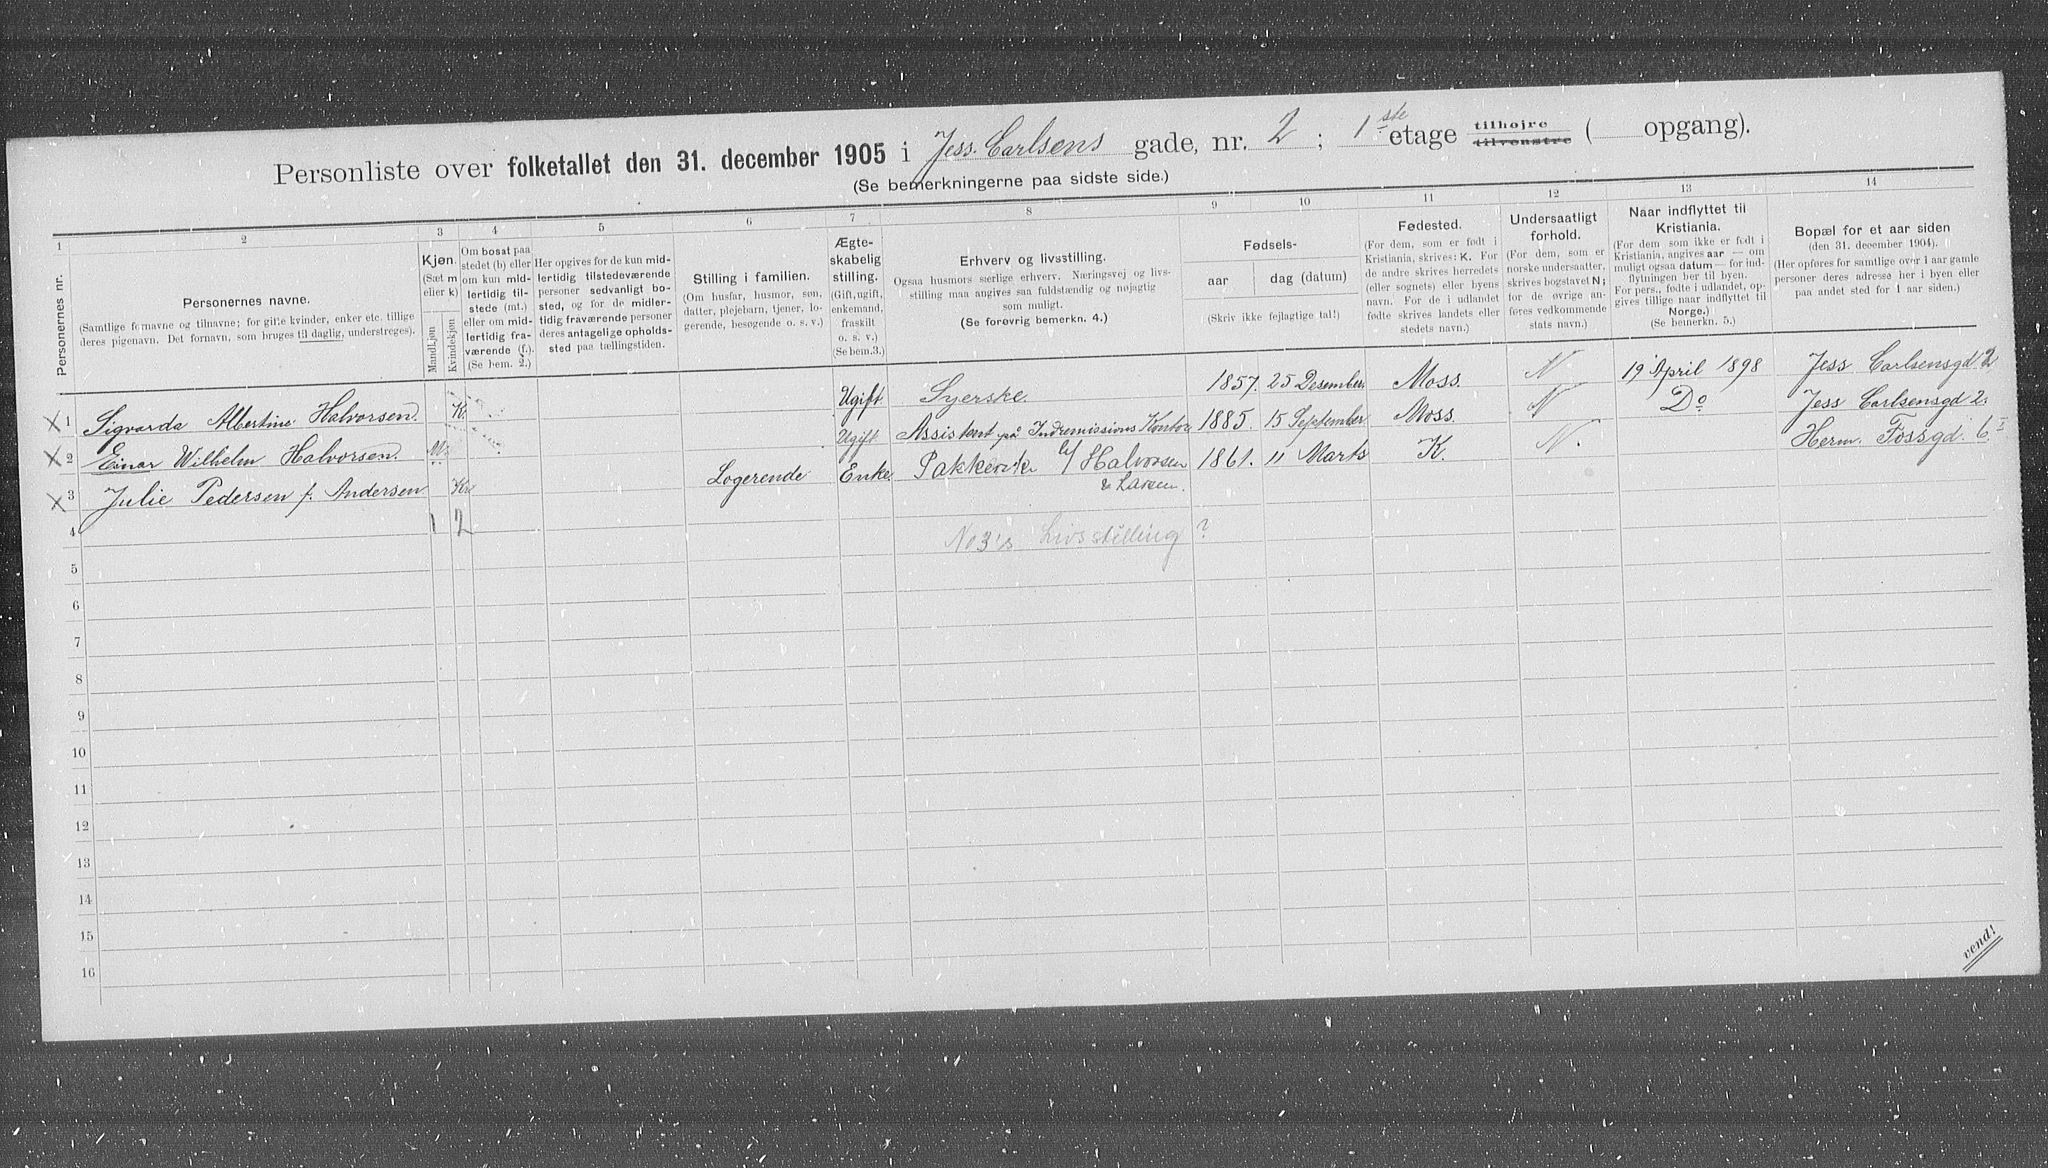 Personliste over folketallet den 31. december 1905 i Jess Carlsens gade, nr. 2 ; 1ste etage tilhøjre tilvenstre ( opgang).
(Se bemerkningerne paa sidste side.)
1 2 3 4 5 6 7 8 9 10 11 12 13 14
Personernes nr.
Personernes navne.
(Samtlige fornavne og tilnavne; for gifte kvinder, enker etc. tillige
deres pigenavn. Det fornavn, som bruges til daglig, understreges).
Kjøn.
(Sæt m
eller k)
Mandkjøn
Kvindekjøn
Om bosat paa
stedet (b) eller
om kun mid-
lertidig til-
stede (mt.)
eller om mid-
lertidig fra-
værende (f.).
(Se bem. 2.)
Her opgives for de kun mid-
lertidig tilstedeværende
personer sedvanligt bo-
sted, og for de midler-
tidig fraværende personer
deres antagelige opholds-
sted paa tællingstiden.
Stilling i familien.
(Om husfar, husmor, søn,
datter, plejebarn, tjener, lo-
gerende, besøgende o. s. v.)
Ægte-
skabelig
stilling.
(Gift, ugift,
enkemand,
fraskilt
o. s. v.)
(Se bem.3.)
Erhverv og livsstilling.
Ogsaa husmors særlige erhverv. Næringsvej og livs-
stilling maa angives saa fuldstændig og nøjagtig
som muligt.
(Se forøvrig bemerkn. 4.)
Fødsels-
aar dag (datum)
(Skriv ikke fejlagtige tal!)
Fødested.
(For dem, som er født i
Kristiania, skrives: K. For
de andre skrives herredets
(eller sognets) eller byens
navn. For de i udlandet
fødte skrives landets eller
stedets navn.)
Undersaatligt
forhold.
(For dem, som er
norske undersaatter,
skrives bogstavet N;
for de øvrige an-
føres vedkommende
stats navn.)
Naar indflyttet til
Kristiania.
(For dem som ikke er født i
Kristiania, angives aar — om
muligt ogsaa datum — for ind-
flytningen her til byen.
For pers., fødte i udlandet, op-
gives tillige naar indflyttet til
Norge.)
(Se bemerkn. 5.)
Bopæl for et aar siden
(den 31. december 1904).
(Her opføres for samtlige over 1 aar gamle
personer deres adresse her i byen eller
paa andet sted for 1 aar siden.)
1 Sigvarda Albertine Halvorsen. K. Ugift Syerske. 1857. 25 Desember. Moss. N 19 April 1898 Jess Carlsensgd 2
2 Einar Wilhelm Halvorsen. Ugift Assistent på Indremissions Kontor 1885. 15 September Moss. N Do Jess Carlsensgd 2.
3 Julie Pedersen f. Andersen Logerende Enke. Pakkerske Halvorsen 1861. 11 Marts K. N. Herm. Fossgd. 6. I
& Larsen.
4 1 2
No 3's Livsstilling ?
5
6
7
8
9
10
11
12
13
14
15
16
vend!